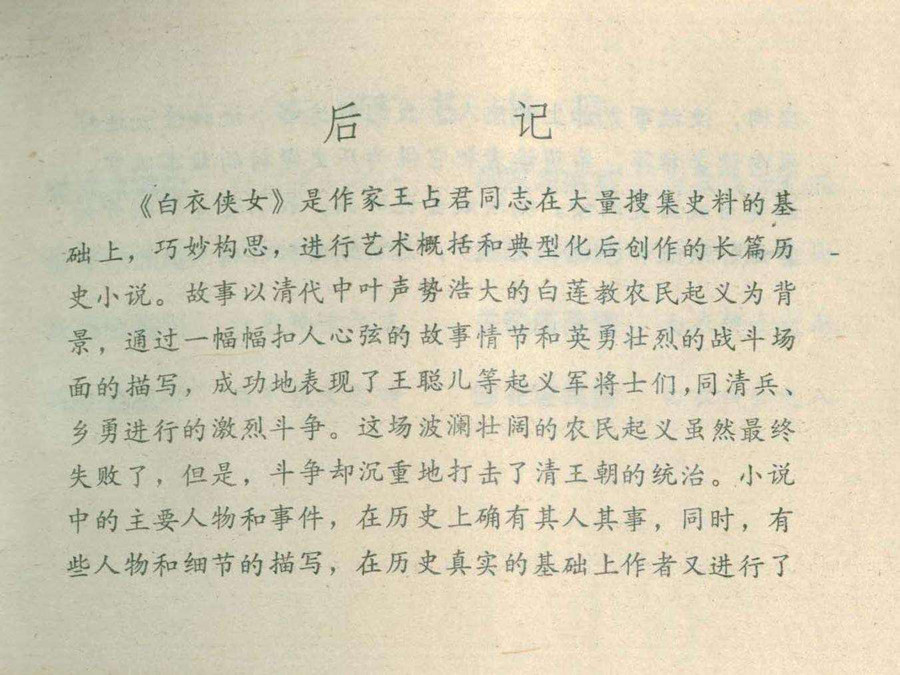 后 记
《白衣侠女》是作家王占君同志在大量搜集史料的基
础上，巧妙构思，进行艺术概括和典型化后创作的长篇历
史小说。故事以清代中叶声势浩大的白莲教农民起义为背
景，通过一幅幅扣人心弦的故事情节和英勇壮烈的战斗场
面的描写，成功地表现了王聪儿等起义军将士们，同清兵、
乡勇进行的激烈斗争。这场波澜壮阔的农民起义虽然最终
失败了，但是，斗争却沉重地打击了清王朝的统治。小说
中的主要人物和事件，在历史上确有其人其事，同时，有
些人物和细节的描写，在历史真实的基础上作者又进行了